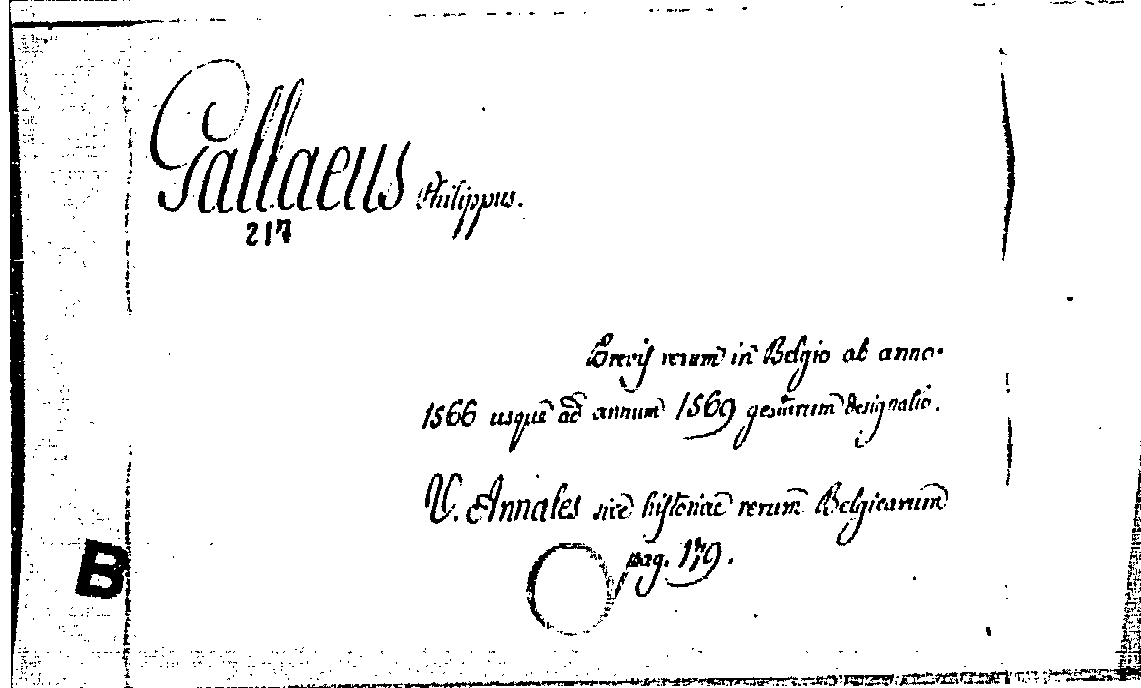 Gallaeus Philippus.
217
Brevis rerum in Belgio ab anno
1566 usque ad annum 1569 gestarum designatio.
V. Annales sive historiae rerum Belgicarum
pag. 179.
B